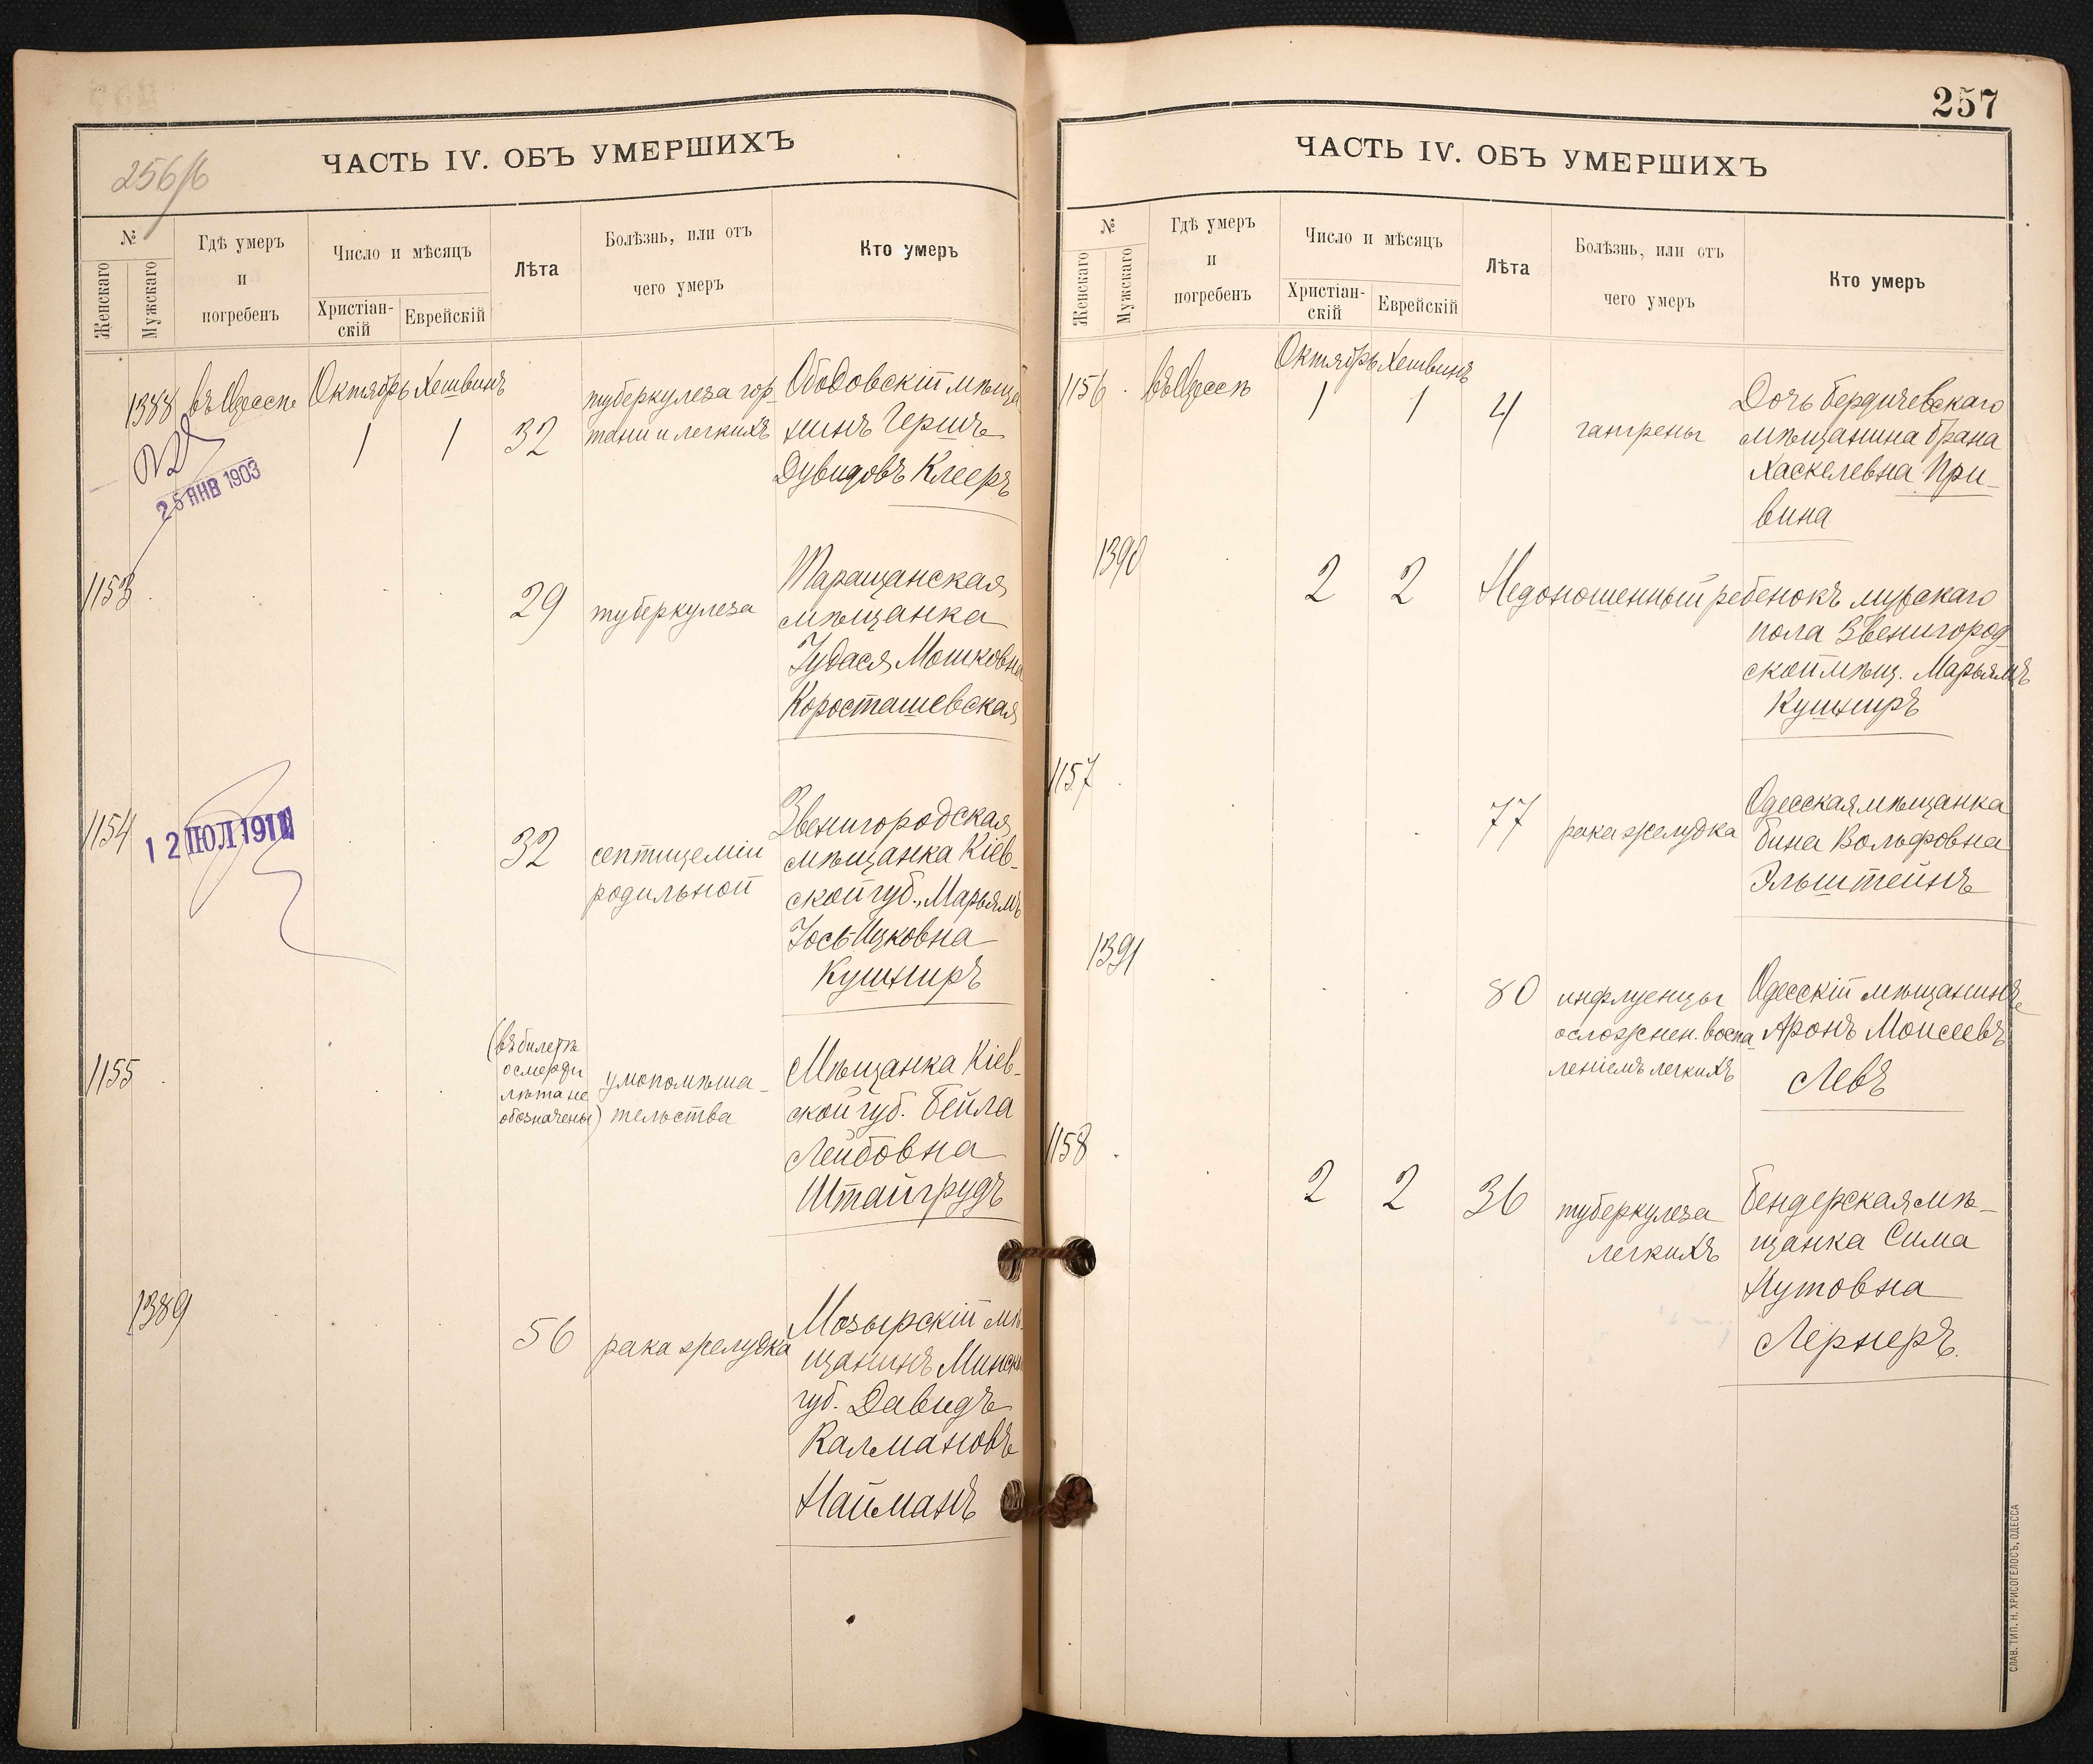 256/б
ЧАСТЬ IV. ОБЪ УМЕРШИХЪ
№
Женскаго
Мужскаго
Гдѣ умеръ
и
погребенъ
Число и мѣсяцъ
Христіан-
скій
Еврейскій
Лѣта
Болѣзнь, или отъ
чего умеръ
Кто умеръ
1388 въ Одессѣ Октябрь Хешвинъ
1 1 32
туберкулеза гор
тани и легкихъ
Ободовскій мѣща
нинъ Гершъ
Дувидовъ Клееръ
25 ЯНВ 1903
1153
29 туберкулеза
Таращанская
мѣщанка
Худася Мошковна
Коросташевская
1154
12 ІЮЛ 1911
32 септицеміи
родильной
Звенигородская
мѣщанка Кіев-
ской губ., Марьямъ
Іось-Ицковна
Кушниръ
1155
(въ билетѣ
о смерти
лѣта не
обозначены)
умопомѣша-
тельства
Мѣщанка Кіев-
ской губ. Бейла
Лейбовна
Штайгрудъ
1389
56 рака желудка
Мозырскій мѣ-
щанинъ Минск
губ. Давидъ
Калмановъ
Найманъ
257
ЧАСТЬ IV. ОБЪ УМЕРШИХЪ
№
Женскаго
Мужскаго
Гдѣ умеръ
и
погребенъ
Число и мѣсяцъ
Христіан-
скій
Еврейскій
Лѣта
Болѣзнь, или отъ
чего умеръ
Кто умеръ
1156 въ Одессѣ Октябрь Хешвинъ
1 1 4
гангрены
Дочь бердичевскаго
мѣщанина Брана
Хаскелевна При-
вина
1390
2 2 Недоношенный ребенокъ мужскаго
пола Звенигород
ской мѣщ. Марьямъ
Кушниръ
1157
77 рака желудка
Одесская мѣщанка
Бина Вольфовна
Эльштейнъ
1391
80 инфлуенцы
осложнен. воспа
леніемъ легкихъ
Одесскій мѣщанинъ
Аронъ Моисеевъ
Левъ
1158
2 2 36 туберкулеза
легкихъ
Бендерская мѣ-
щанка Сима
Нутовна
Лернеръ.
СЛАВ. ТИП. Н. ХРИСОГЕЛОСЪ, ОДЕССА